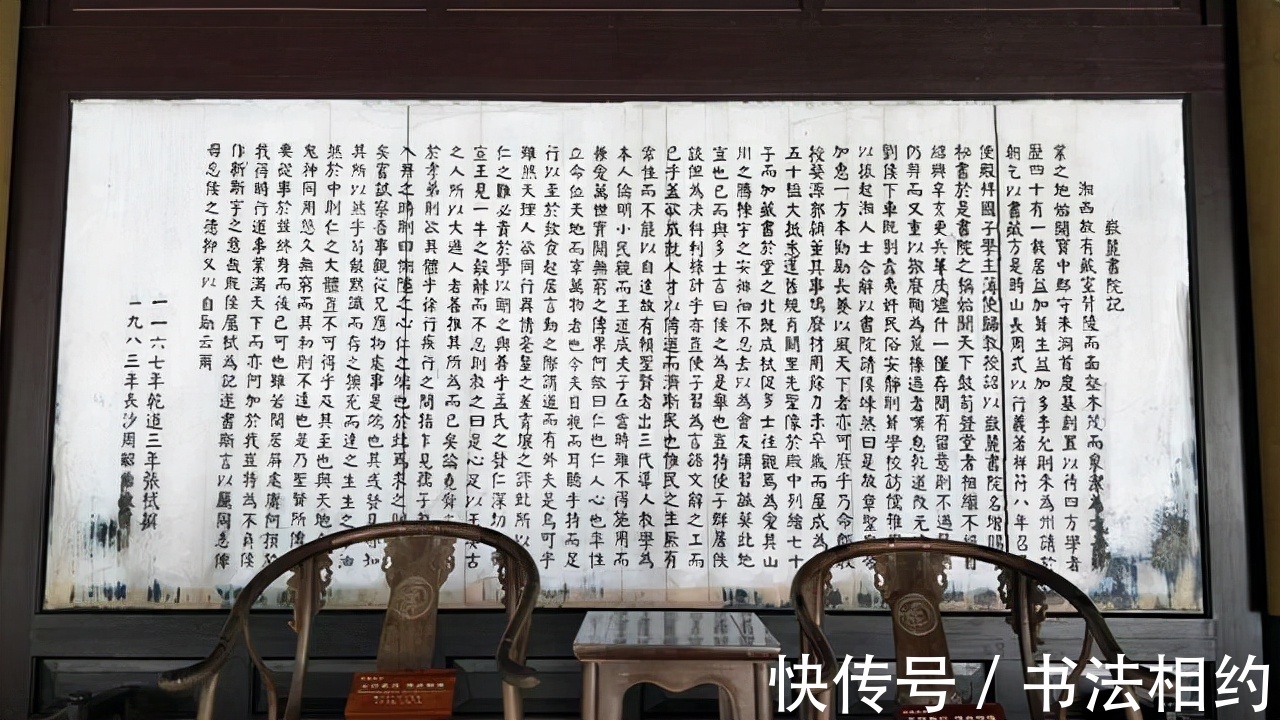 嶽麓書院記
湘西故有藏室背陵而面壑木茂而泉潔為士
業之地始開寶中郡守朱洞首度基創置以待四方學者
歷四十有一載居益加葺生益加多李允則來為州請於
朝乞以書藏方是時山長周式以行義著祥符八年召
便殿拜國子學主簿使歸教授詔以嶽麓書院名增賜
秘書於是書院之稱始聞天下鼓笥登堂者相繼不絕自
紹興辛亥更兵革灰燼什一僅存間有留意則不過
仍苟而又重以撤廢鞠為荒榛過者嘆息乾道改元
劉侯下車既剔蠹夷奸民俗安靜則葺學校訪儒雅
以振起湘人士合辭以書院請侯竦然曰是故章聖皇
加惠一方來勸勵長養以風天下者亦可廢乎乃命郡教
授婺源郭穎董其事鳩廢材用餘力未半歲而屋成為
五十楹大抵悉還舊規肖闕里先聖像於殿中列繪七十
子而加藏書於堂之北既成栻促多士往觀焉為愛其山
川之勝棟宇之安徘徊不忍去以為會友講習誠莫此地
宜也已而與多士言曰侯之為是舉也豈特使子群居佚
談但為決科利祿計乎亦豈使子習為言語文辭之工而
已乎蓋欲成就人才以傳道而濟斯民也惟民之生厥有
常性而不能以自達故有賴聖賢者出三代導人教學為
本人倫明小民親而王道成夫子在當時雖不得施用而
兼愛萬世實開無窮之傳果何歟曰仁也仁人心也率性
立命位天地而宰萬物者也今夫目視而耳聽手持而足
行以至於飲食起居言動之際謂道而有外夫是烏可乎
雖然天理人欲同行異情毫釐之差霄壤之謬此所以
仁之難必貴於學以明之與善乎孟氏之發仁深切
宣王見一牛之觳觫而不忍則教之曰是心足以王矣古
之人所以大過人者善推其所為而已矣論堯舜
於孝弟則欲其體乎徐行疾行之間指乍見孺子
入井之時則曰惻隱之心仁之端也於此焉求之則
矣嘗試察吾事親從兄應物處事是端也其或發見
其所以然乎苟能默識而存之擴充而達之生生之
然於中則仁之大體豈不可得乎及其至也與天地合
鬼神同用悠久無窮而其初則不遠也是乃聖賢所傳
要從事於茲終身而後已可也雖若閑居屏處庸何損於
我得時行道事業滿天下而亦何加於我豈特為不負侯
作新斯宇之意哉既侯屬栻為記遂書斯言以厲同志俾
毋忘侯之德抑又以自勵云爾
一一六七年乾道三年張栻撰
一九八三年長沙周昭怡敬書
快传号 / 书法相约